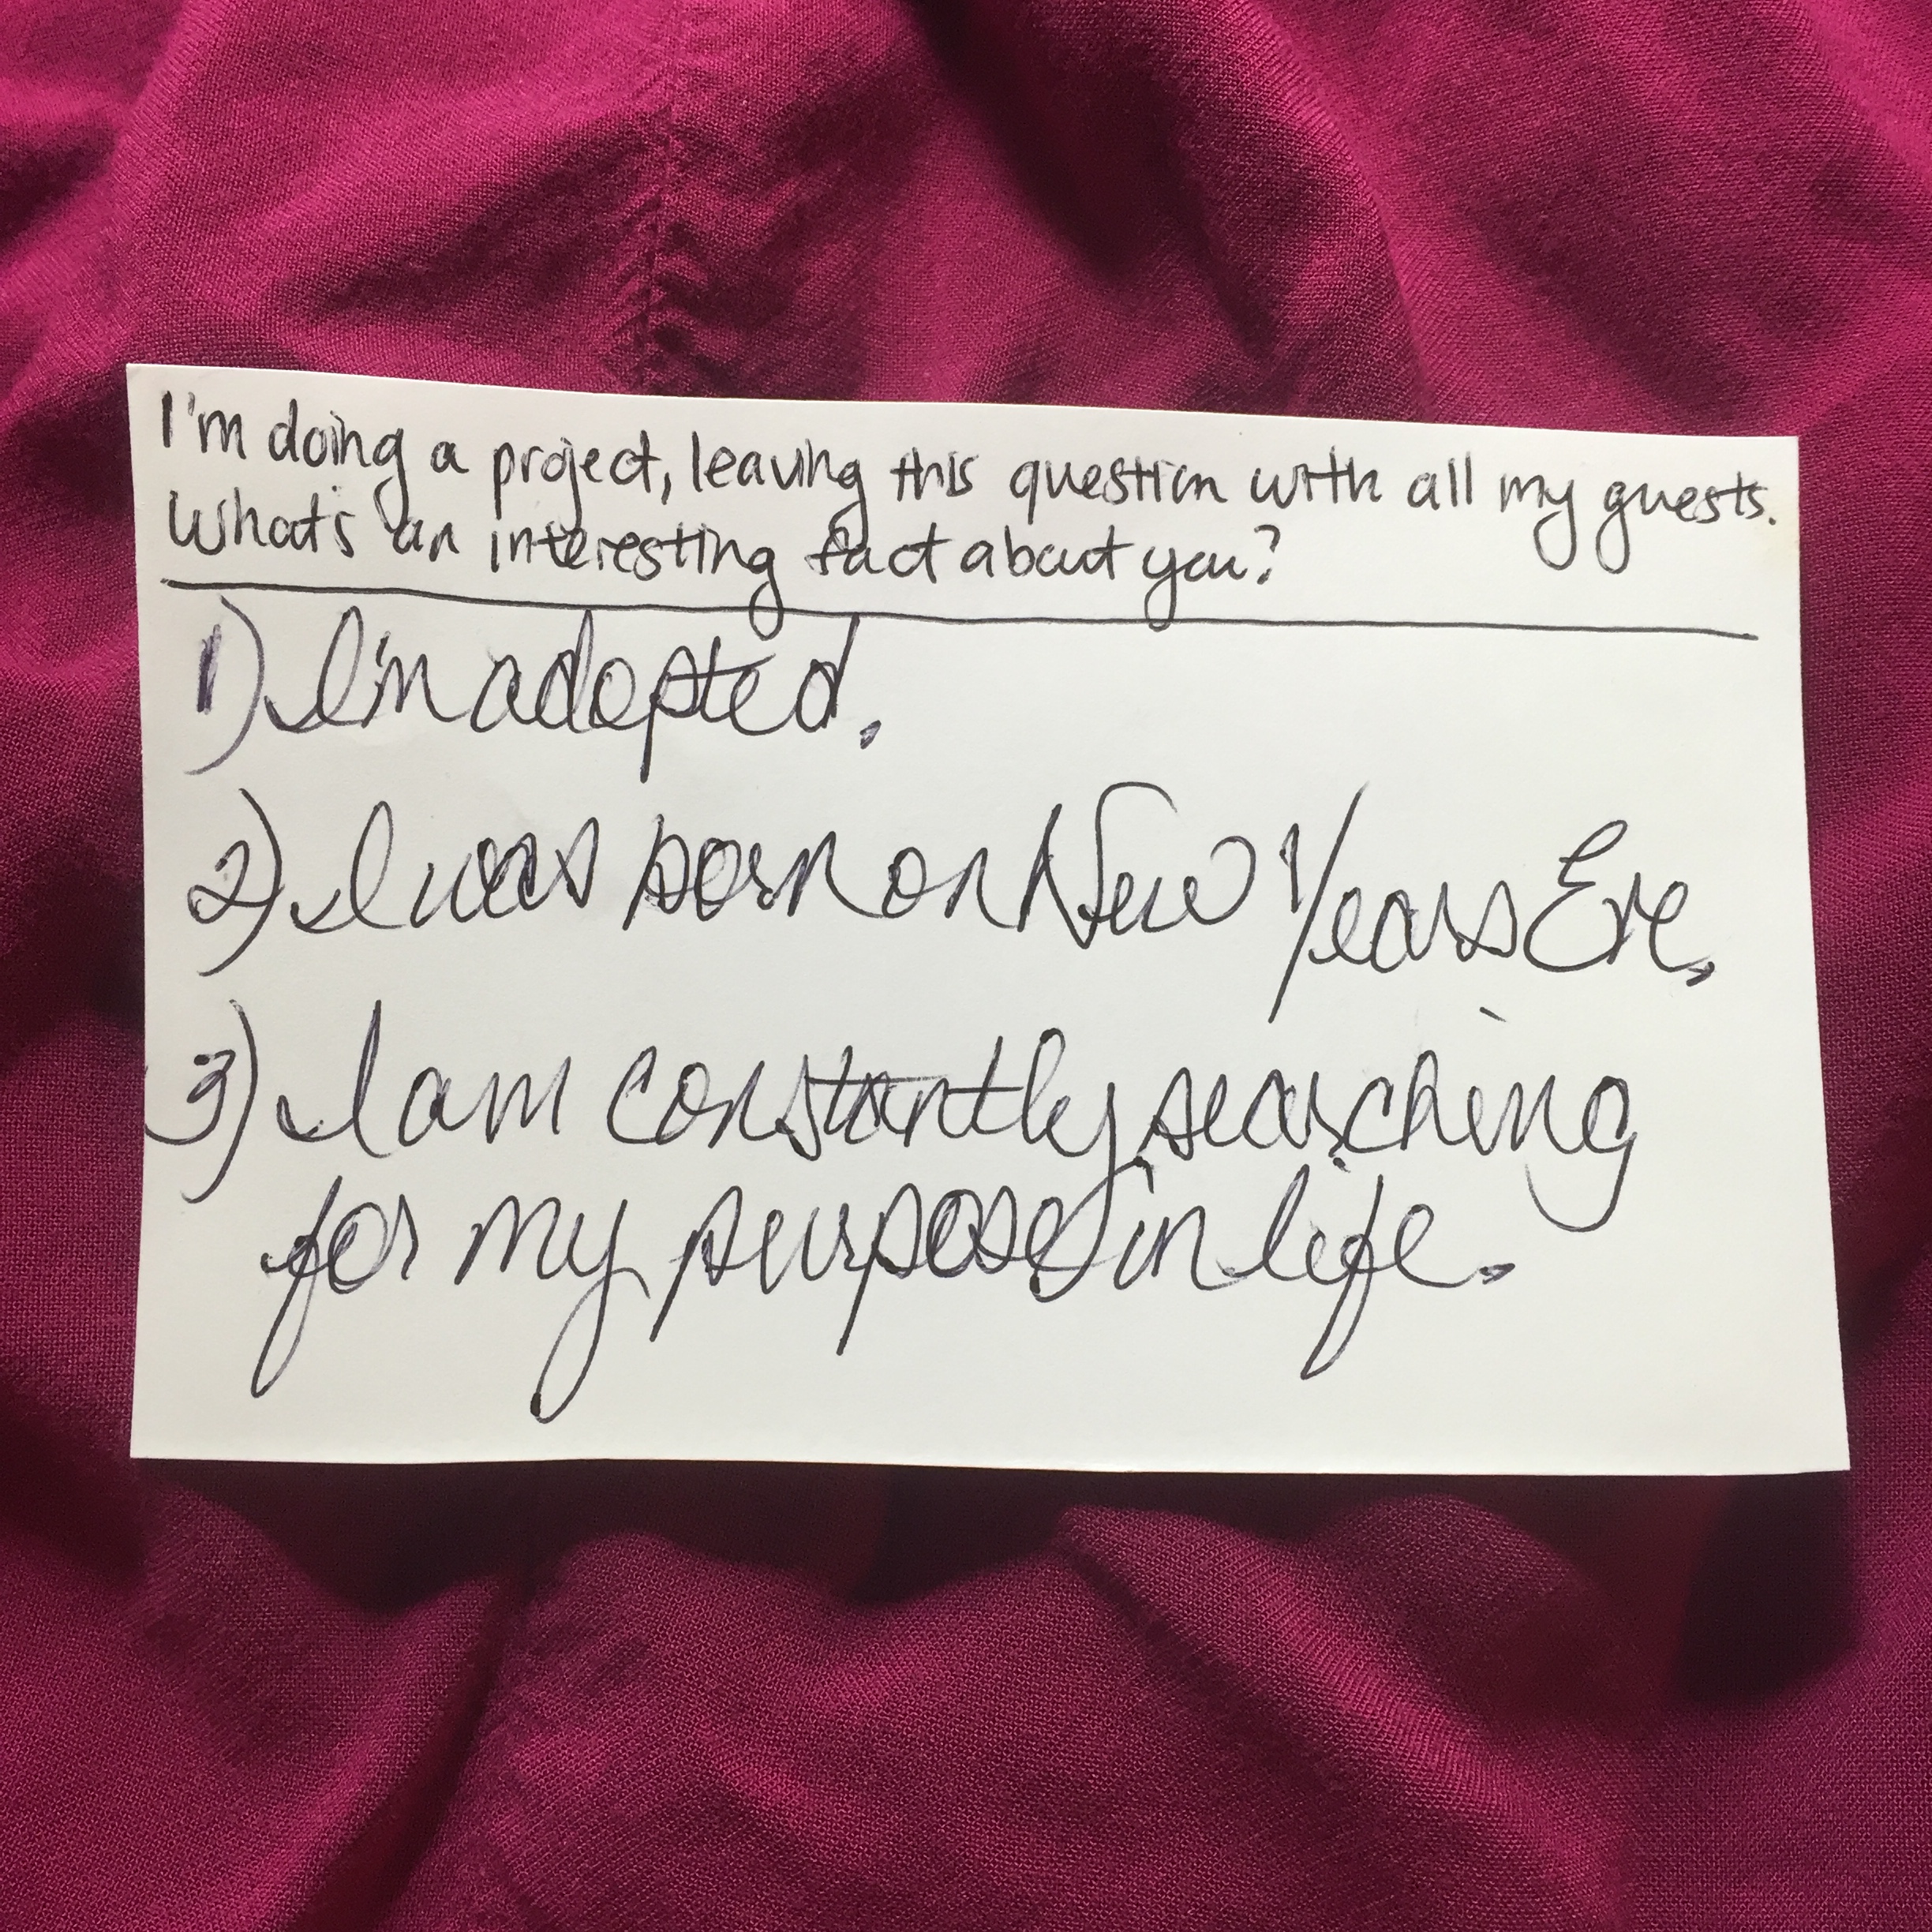 I'm doing a project, leaving this question with all my guests.
What's an interesting fact about you?
1) I'm adopted.
2) I was born on New Years Eve.
3) I am constantly searching
for my purpose in life.